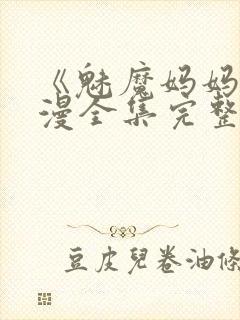 《魅魔妈妈
漫全集完整
豆皮兒卷油條